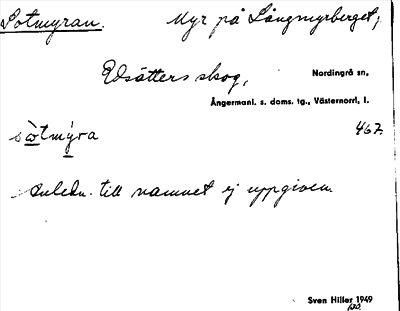 Sotmyran. Myr på Långmyrberget,
Edsätters skog, Nordingrå sn,
Ångermanl. s. doms. tg., Västernorrl. l.
sòtmýra 467.
Anledn. till namnet ej uppgiven.
Sven Hiller 1949